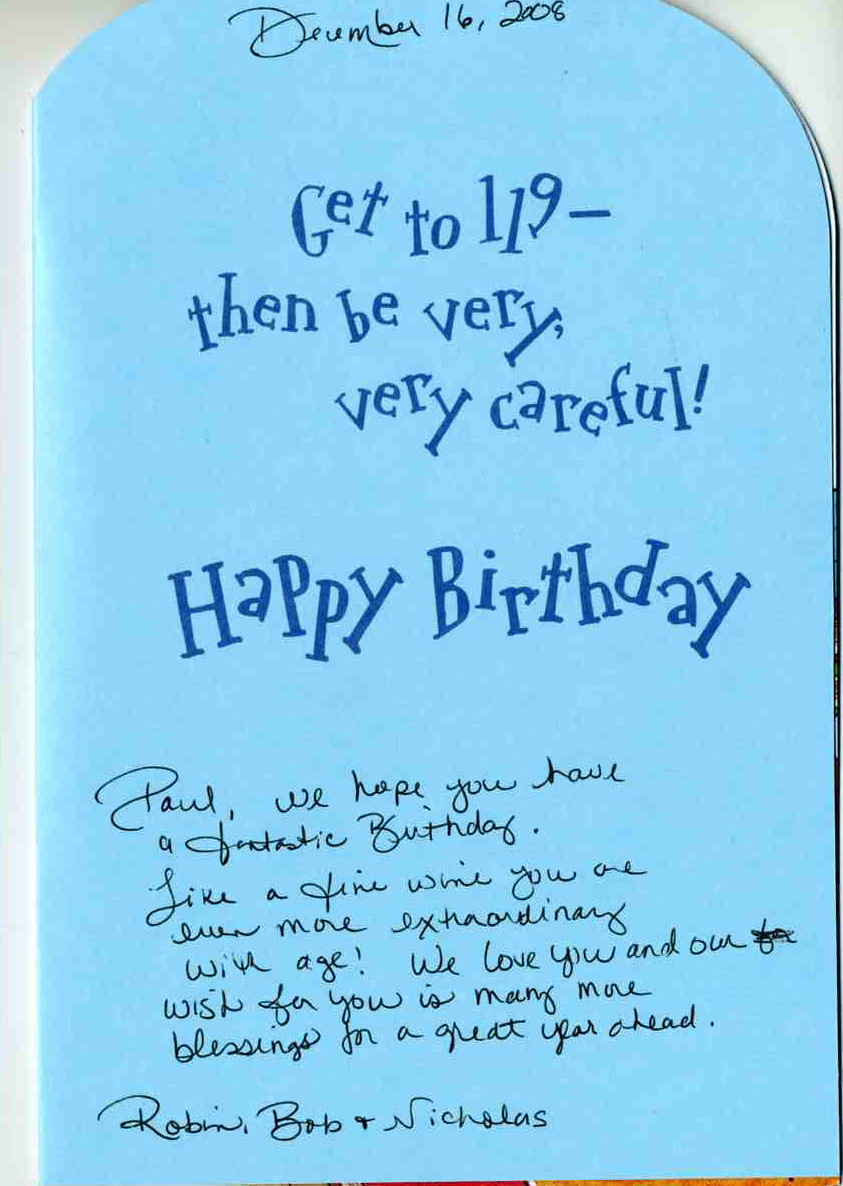 December 16, 2008
Get to 119–
then be very,
very careful!
Happy Birthday
Paul, we hope you have
a fantastic Birthday.
Like a fine wine you are
even more extraordinary
with age! We love you and our
wish for you is many more
blessings for a great year ahead.
Robin, Bob + Nicholas